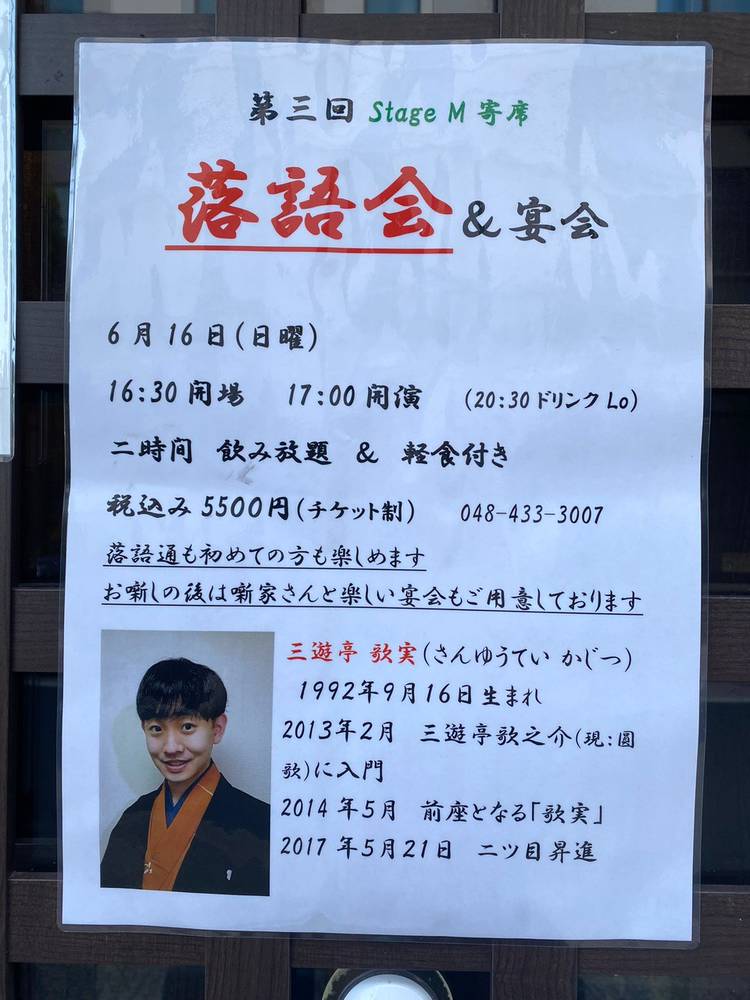 第三回 Stage M 寄席
落語会&宴会
6月16日(日曜)
16:30開場 17:00開演 (20:30ドリンクLo)
二時間 飲み放題 & 軽食付き
税込み5500円(チケット制) 048-433-3007
落語通も初めての方も楽しめます
お噺しの後は噺家さんと楽しい宴会もご用意しております
三遊亭 歌実(さんゆうてい かじつ)
1992年9月16日生まれ
2013年2月 三遊亭歌之介(現:圓
歌)に入門
2014年5月 前座となる「歌実」
2017年5月21日 二ツ目昇進